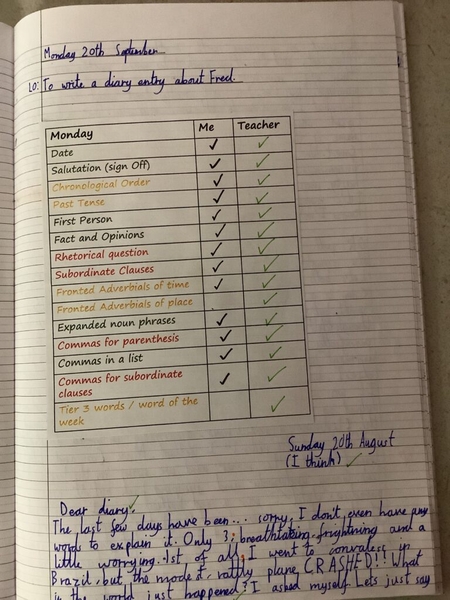 Monday 20th September
LO: To write a diary entry about Fred.
Monday Me Teacher
Date ✓ ✓
Salutation (sign Off) ✓ ✓
Chronological Order ✓ ✓
Past Tense ✓ ✓
First Person ✓ ✓
Fact and Opinions ✓ ✓
Rhetorical question ✓ ✓
Subordinate Clauses ✓ ✓
Fronted Adverbials of time ✓ ✓
Fronted Adverbials of place ✓
Expanded noun phrases ✓ ✓
Commas for parenthesis ✓ ✓
Commas in a list ✓ ✓
Commas for subordinate
clauses ✓ ✓
Tier 3 words / word of the
week ✓
Sunday 20th August
(I think) ✓
Dear diary,
The last few days have been... sorry, I don't even have any
words to explain it. Only 3; breathtaking, frightning and a
little worrying. 1st of all, I went to in
Brazil, but the modest, rattly plane, CRASHED!! What
in the world just happened? I asked myself. Lets just say